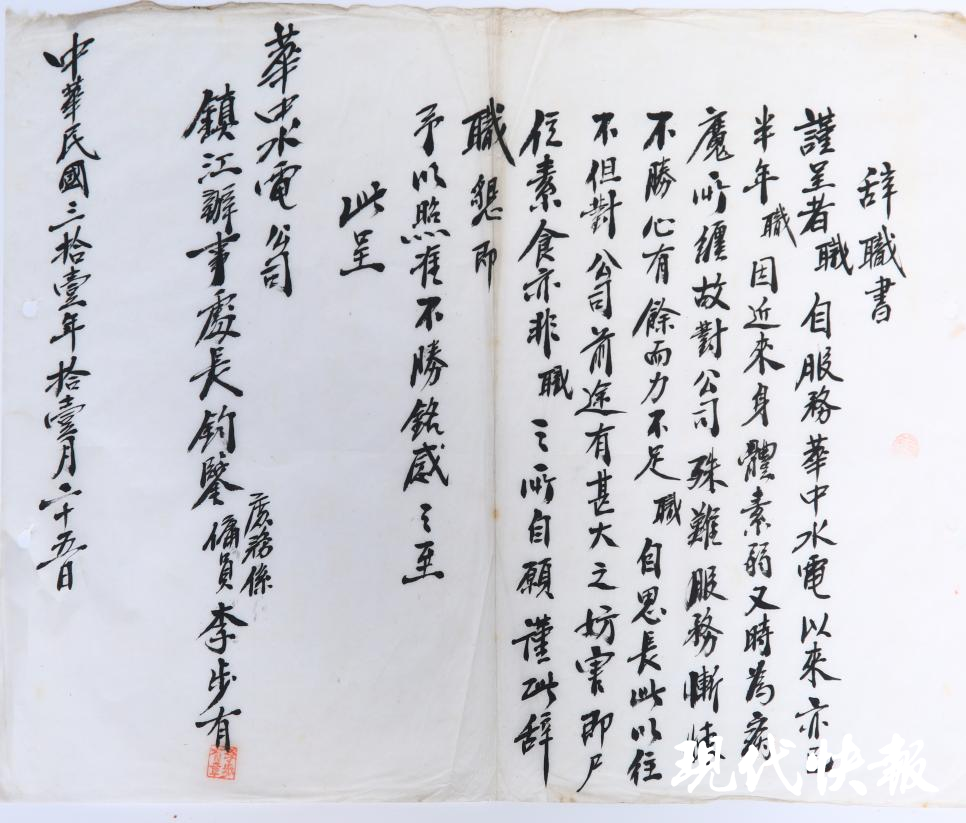 辞職書
謹呈者職自服務華中水電以來亦已
半年職因近來身體素弱又時為病
魔所纏故對公司殊難服務慚愧
不勝心有餘而力不足職自思長此以往
不但對公司前途有甚大之妨害即尸
位素食亦非職之所自願謹此辞
職懇即
予以照准不勝銘感之至
此呈
華中水電公司
鎮江辦事處長鈞鑒
庶務係
傭員李步有
中華民國三拾壹年拾壹月二十五日
現代快報